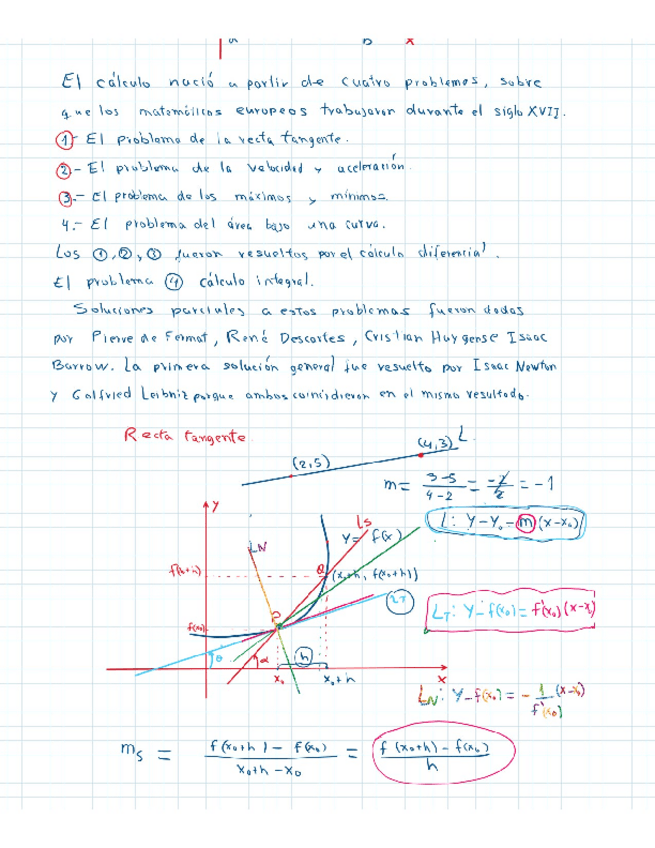 a b x
El cálculo nació a partir de cuatro problemas, sobre
que los matemáticos europeos trabajaron durante el siglo XVII.
1- El problema de la recta tangente.
2.- El problema de la velocidad y aceleración.
3.- El problema de los máximos y mínimos.
4.- El problema del área bajo una curva.
Los ①, ②, ③ fueron resueltos por el cálculo diferencial.
El problema ④ cálculo integral.
Soluciones parciales a estos problemas fueron dadas
por Pierre de Fermat, René Descartes, Cristian Huygense Isaac
Barrow. La primera solución general fue resuelto por Isaac Newton
y Gotfried Leibniz porque ambos coincidieron en el mismo resultado.
Recta tangente.
(2,5) (4,3) L
m = 3-5 / 4-2 = -2/2 = -1
L: y-y₀ = m (x-x₀)
y
LN
Ls
y = f(x)
f(x₀+h)
Q
(x₀+h, f(x₀+h))
LT
LT: y-f(x₀) = f'(x₀) (x-x₀)
f(x₀)
P
θ α h
x₀ x₀+h x
LN: y-f(x₀) = - 1/f'(x₀) (x-x₀)
ms = f(x₀+h) - f(x₀) / x₀+h-x₀ = f(x₀+h) - f(x₀) / h